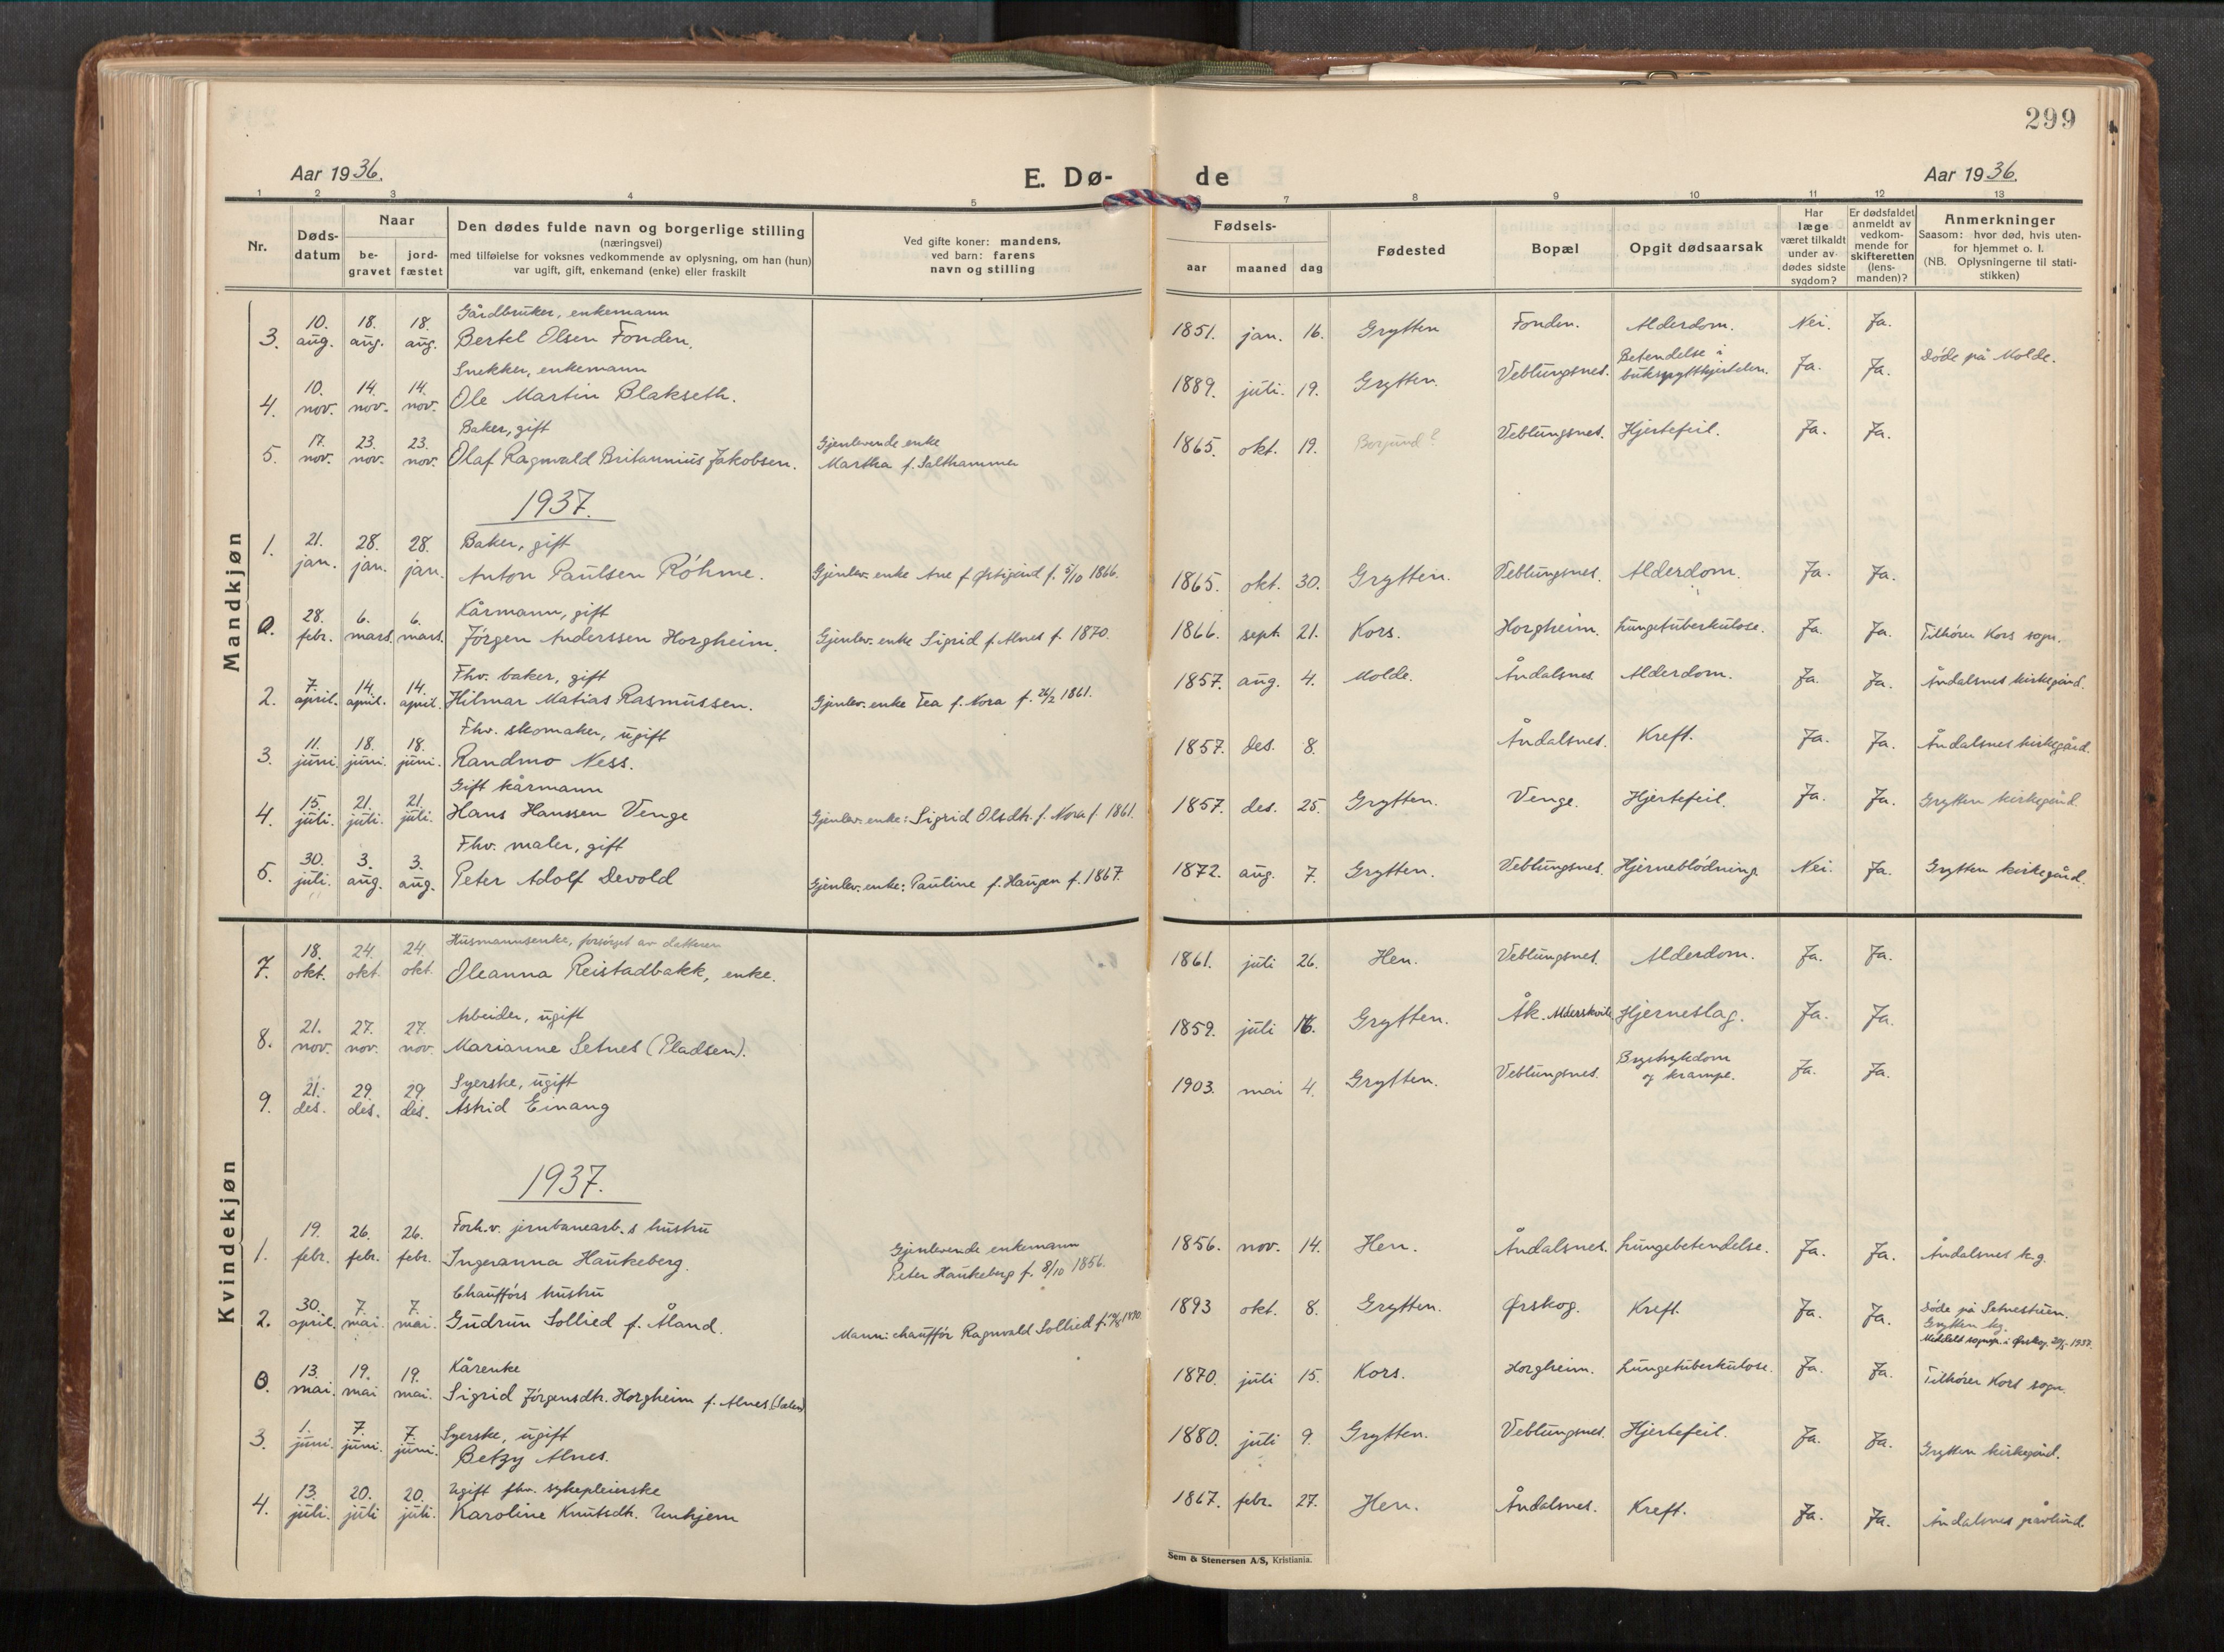 299
Aar 1936.
E. Dø-
de
Aar 1936.
1 2 3 4 5 7 8 9 10 11 12 13
Nr.
Døds-
datum
Naar
be-
gravet
jord-
fæstet
Den dødes fulde navn og borgerlige stilling
(næringsvei)
med tilføielse for voksnes vedkommende av oplysning, om han (hun)
var ugift, gift, enkemand (enke) eller fraskilt
Ved gifte koner: mandens,
ved barn: farens
navn og stilling
Fødsels-
aar maaned dag
Fødested
Bopæl
Opgit dødsaarsak
Har
læge
været tilkaldt
under av-
dødes sidste
sygdom?
Er dødsfaldet
anmeldt av
vedkom-
mende for
skifteretten
(lens-
manden)?
Anmerkninger
Saasom: hvor død, hvis uten-
for hjemmet o. l.
(NB. Oplysningerne til stati-
stikken)
Mandkjøn
Gårdbruker, enkemann
3. 10. aug. 18. aug. 18. aug. Bertel Olsen Fonden. 1851. jan. 16. Grytten Fonden. Alderdom. Nei. Ja.
Snekker, enkemann
4. 10. nov. 14. nov. 14. nov. Ole Martin Blakseth. 1889. juli. 19. Grytten. Veblungsnes. Betendelse i bukspyttkjertelen. Ja. Ja. Døde på Molde.
Baker, gift
5. 17. nov. 23. nov. 23. nov. Olaf Ragnvald Britannius Jakobsen. Gjenlevende enke Martha f. Salthammer 1865. okt. 19. Borgund? Veblungsnes. Hjertefeil. Ja. Ja.
1937.
Baker, gift
1. 21. jan. 28. jan. 28. jan. Anton Paulsen Röhme. Gjenlev. enke Ane f. Østigård f. 5/10 1866. 1865. okt. 30. Grytten. Veblungsnes. Alderdom. Ja. Ja.
Kårmann, gift
0. 28. febr. 6. mars. 6. mars. Jørgen Anderssen Horgheim. Gjenlev. enke Sigrid f. Alnes f. 1870. 1866. sept. 21. Kors. Horgheim. Lungetuberkulose. Ja. Ja. Tilhører Kors sogn.
Fhv. baker, gift
2. 7. april. 14. april. 14. april. Hilmar Matias Rasmussen. Gjenlev. enke Tea f. Nora f. 26/2 1861. 1857. aug. 4. Molde. Åndalsnes Alderdom. Ja. Ja. Åndalsnes kirkegård.
Fhv. skomaker, ugift
3. 11. juni. 18. juni. 18. juni. Randmo Ness. 1857. des. 8. Åndalsnes. Kreft. Ja. Ja. Åndalsnes kirkegård.
Gift kårmann
4. 15. juli. 21. juli. 21. juli. Hans Hanssen Venge Gjenlev. enke: Sigrid Olsdtr. f. Nora f. 1861. 1857. des. 25. Grytten. Venge. Hjertefeil. Ja. Ja. Grytten kirkegård
Fhv. maler, gift
5. 30. juli. 3. aug. 3. aug. Peter Adolf Devold Gjenlev. enke: Pauline f. Haugen f. 1867. 1872. aug. 7. Grytten. Veblungsnes. Hjerneblödning. Nei. Ja. Grytten kirkegård.
Kvindekjøn
Husmannsenke, forsörget av datteren
7. 18. okt. 24. okt. 24. okt. Oleanna Reistadbakk, enke. 1861. juli 26. Hen. Veblungsnes. Alderdom. Ja. Ja.
Arbeider, ugift
8. 21. nov. 27. nov. 27. nov. Marianne Setnes (Pladsen). 1859. juli 16. Grytten. Åk. Alderskvile Hjerneslag. Ja. Ja.
Syerske, ugift
9. 21. des. 29. des. 29. des. Astrid Einang 1903. mai 4. Grytten. Veblungsnes. Brystsykdom og krampe. Ja. Ja.
1937.
Forh.v. jernbanearb.s hustru
1. 19. febr. 26. febr. 26. febr. Ingeranna Haukeberg. Gjenlevende enkemann Peter Haukeberg f. 8/10 1856. 1856. nov. 14. Hen. Åndalsnes. Lungebetendelse. Ja. Ja. Åndalsnes k.g.
Chaufförs hustru
2. 30. april. 7. mai. 7. mai. Gudrun Sollied f. Åland. Mann: chauffør Ragnvald Sollied 1893 okt. 8. Grytten. Ørskog. Kreft. Ja. Ja. Døde på Setnestuen. Grytten kg. Meddelt sognepr. i Ørskog 20/5 1937.
Kårenke
0. 13. mai. 19. mai 19. mai. Sigrid Jörgensdtr. Horgheim f. Alnes 1870. juli 15. Kors. Horgheim. Lungetuberkulose. Ja. Ja. Tilhörer Kors sogn.
Syerske, ugift
3. 1. juni. 7. juni. 7. juni. Betzy Alnes. 1880. juli 9. Grytten. Veblungsnes. Hjertefeil. Ja. Ja. Grytten kirkegård.
Ugift fhv. sykepleierske
4. 13. juli. 20. juli 20. juli. Karoline Knutsdtr. Unhjem 1867. febr. 27. Hen. Åndalsnes. Kreft. Ja. Ja. Åndalsnes gravlund.
Sem & Stenersen A/S, Kristiania.